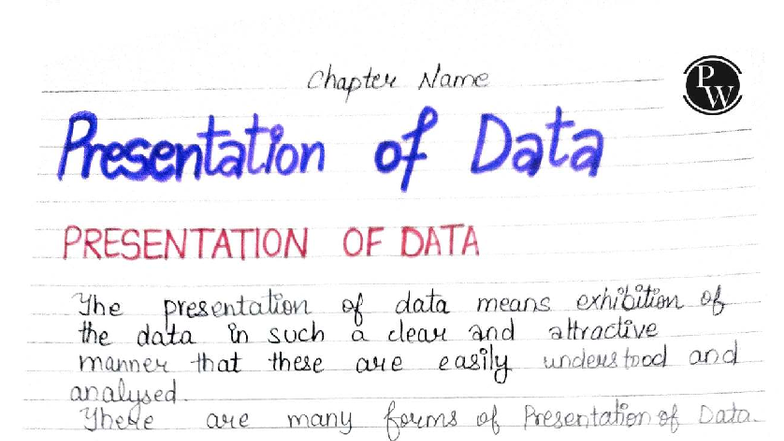 Chapter Name
PW
Presentation of Data
PRESENTATION OF DATA
The presentation of data means exhibition of
the data in such a clear and attractive
manner that these are easily understood and
analysed.
There are many forms of Presentation of Data.